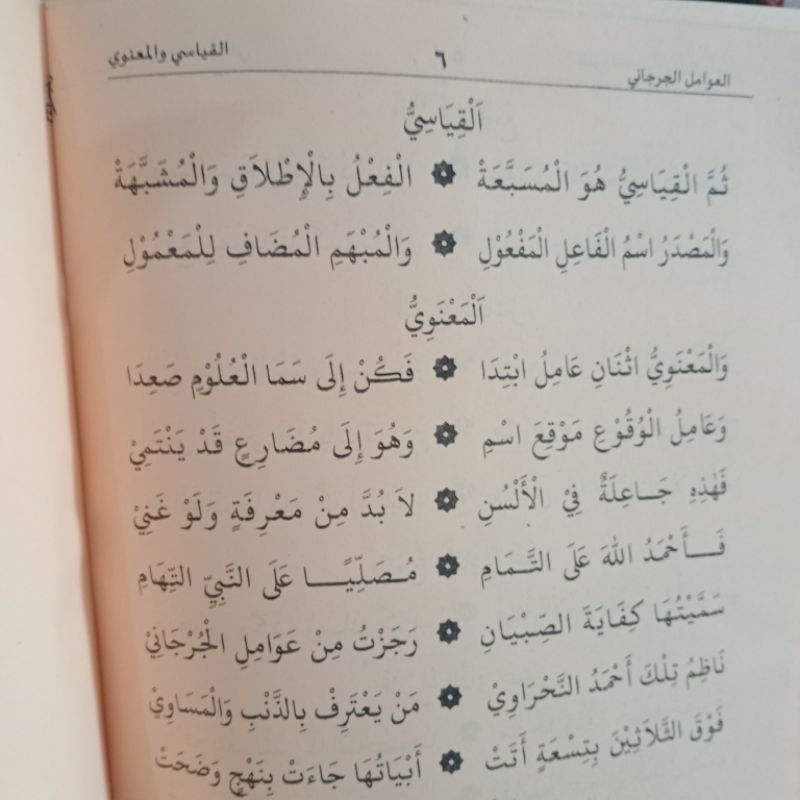 العوامل الجرجاني ٦ القياسي والمعنوي
اَلْقِيَاسِيُّ
ثُمَّ الْقِيَاسِيُّ هُوَ الْمُسَبَّعَةْ ۞ الْفِعْلُ بِالْإِطْلَاقِ وَالْمُشَبَّهَةْ
وَالْمَصْدَرُ اسْمُ الْفَاعِلِ الْمَفْعُوْلِ ۞ وَالْمُبْهَمِ الْمُضَافِ لِلْمَعْمُوْلِ
اَلْمَعْنَوِيُّ
وَالْمَعْنَوِيُّ اثْنَانِ عَامِلُ ابْتِدَا ۞ فَكُنْ إِلَى سَمَا الْعُلُوْمِ صَعِدَا
وَعَامِلُ الْوُقُوْعِ مَوْقِعَ اسْمِ ۞ وَهُوَ إِلَى مُضَارِعٍ قَدْ يَنْتَمِيْ
فَهٰذِهِ جَاعِلَةٌ فِيْ الْأَلْسُنِ ۞ لَا بُدَّ مِنْ مَعْرِفَةٍ وَلَوْ غَنِيْ
فَأَحْمَدُ اللهَ عَلَى التَّمَامِ ۞ مُصَلِّيًا عَلَى النَّبِيِّ التِّهَامِ
سَمَّيْتُهَا كِفَايَةَ الصِّبْيَانِ ۞ رَجَزْتُ مِنْ عَوَامِلِ الْجُرْجَانِيْ
نَاظِمُ تِلْكَ أَحْمَدُ النَّحْرَاوِيْ ۞ مَنْ يَعْتَرِفْ بِالذَّنْبِ وَالْمَسَاوِيْ
فَوْقَ الثَّلَاثِيْنَ بِتِسْعَةٍ أَتَتْ ۞ أَبْيَاتُهَا جَاءَتْ بِنَهْجٍ وَضَحَتْ